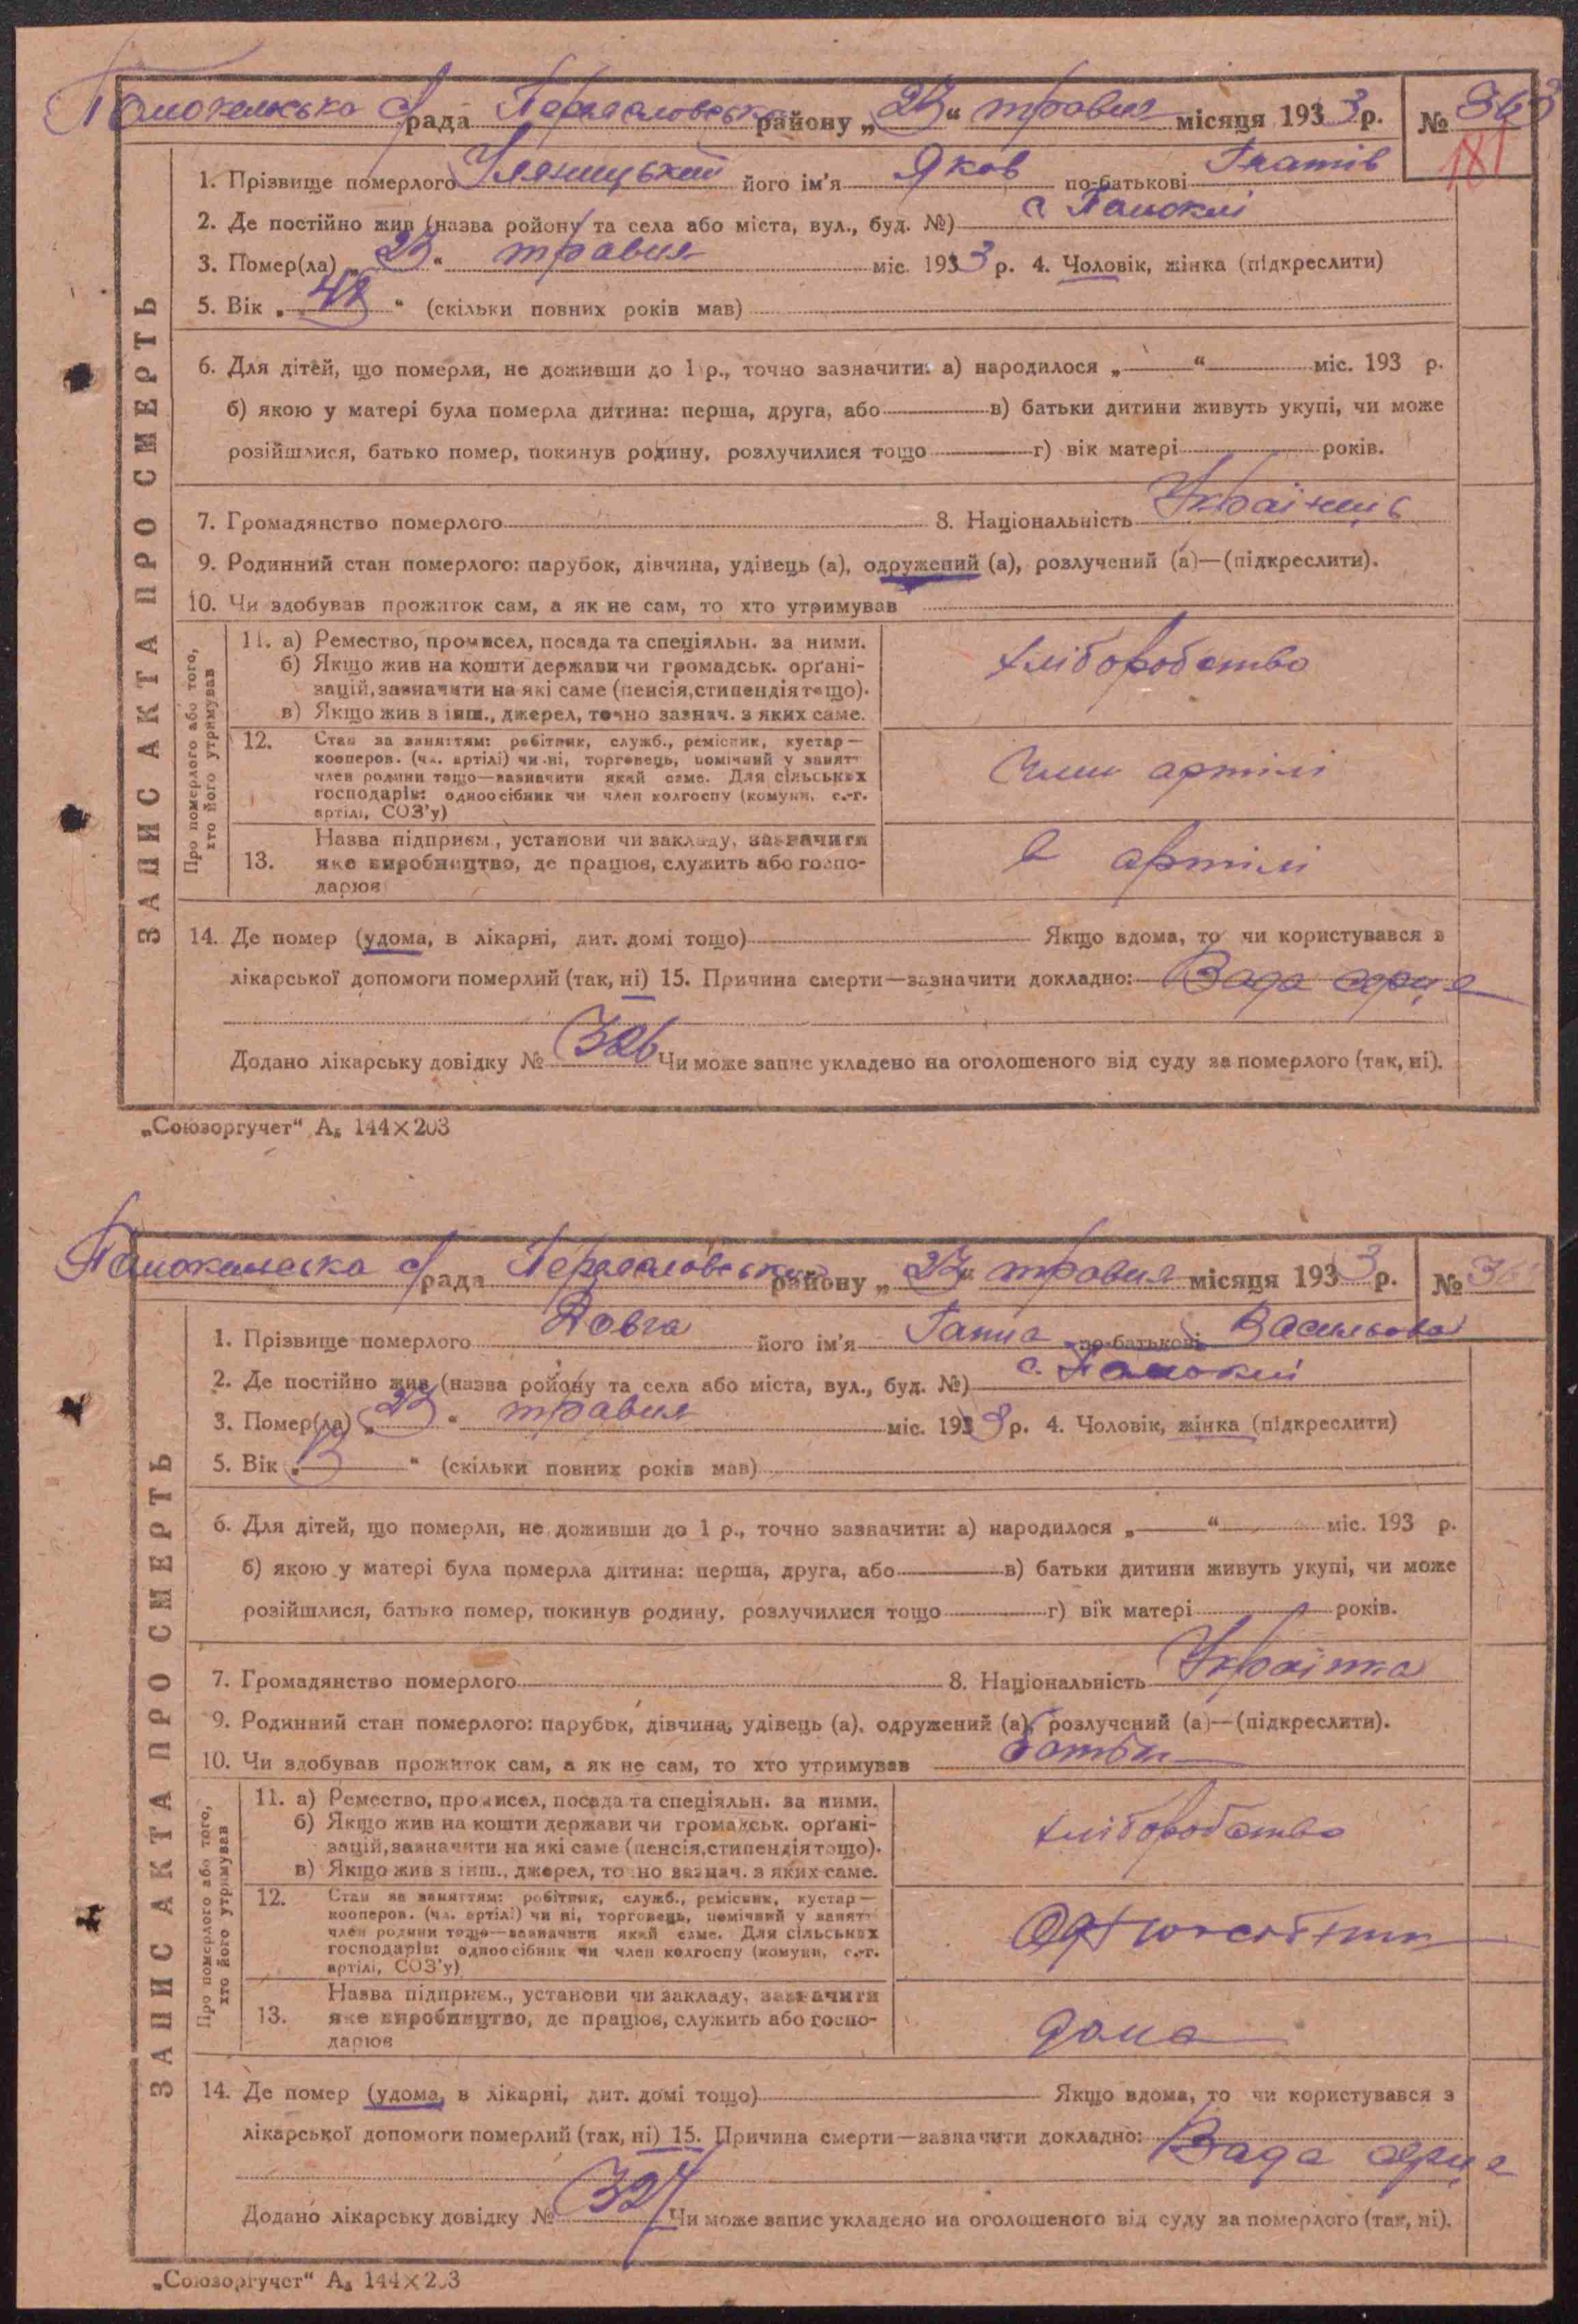 Помокельська с/рада Переяславськ району „23“ травня місяця 1933 р. № 363
181
1. Прізвище померлого його ім'я Яков по-батькові Гнатів
2. Де постійно жив (назва ройону та села або міста, вул., буд. №) с
3. Помер(ла) „23“ травня міс. 1933 р. 4. Чоловік, жінка (підкреслити)
5. Вік „48“ (скільки повних років мав)
6. Для дітей, що померли, не доживши до 1 р., точно зазначити: а) народилося „ “ міс. 193 р.
б) якою у матері була померла дитина: перша, друга, або в) батьки дитини живуть укупі, чи може
розійшлися, батько помер, покинув родину, розлучилися тощо г) вік матері років.
7. Громадянство померлого 8. Національність Українець
9. Родинний стан померлого: парубок, дівчина, удівець (а), одружений (а), розлучений (а)—(підкреслити).
10. Чи здобував прожиток сам, а як не сам, то хто утримував
ЗАПИС АКТА ПРО СМЕРТЬ
Про померлого або того,
хто його утримував
11. а) Ремество, промисел, посада та спеціяльн. за ними.
б) Якщо жив на кошти держави чи громадськ. орґані-
зацій, зазначити на які саме (пенсія, стипендія тощо).
в) Якщо жив з інш., джерел, точно зазнач. з яких саме.
хліборобство
12. Стан за заняттям: робітник, служб., ремісник, кустар—
кооперов. (чл. артілі) чи ні, торговець, помічний у занятт
член родини тощо—зазначити який саме. Для сільських
господарів: одноосібник чи член колгоспу (комуни, с.-г.
артілі, СОЗ'у)
член артілі
13. Назва підприєм., установи чи закладу, зазначити
яке виробництво, де працює, служить або госпо-
дарює
в артілі
14. Де помер (удома, в лікарні, дит. домі тощо) Якщо вдома, то чи користувався з
лікарської допомоги померлий (так, ні) 15. Причина смерти—зазначити докладно: Вада серця
Додано лікарську довідку № 326 Чи може запис укладено на оголошеного від суду за померлого (так, ні).
„Союзоргучет“ А₅ 144×203
Помокельська с/рада Переяславський району „23“ травня місяця 1933 р. № 36
1. Прізвище померлого Довга його ім'я Ганна по-батькові Васильова
2. Де постійно жив (назва ройону та села або міста, вул., буд. №) с.
3. Помер(ла) „23“ травня міс. 1933 р. 4. Чоловік, жінка (підкреслити)
5. Вік „3“ (скільки повних років мав)
6. Для дітей, що померли, не доживши до 1 р., точно зазначити: а) народилося „ “ міс. 193 р.
б) якою у матері була померла дитина: перша, друга, або в) батьки дитини живуть укупі, чи може
розійшлися, батько помер, покинув родину, розлучилися тощо г) вік матері років.
7. Громадянство померлого 8. Національність Українка
9. Родинний стан померлого: парубок, дівчина, удівець (а), одружений (а), розлучений (а)—(підкреслити).
10. Чи здобував прожиток сам, а як не сам, то хто утримував батьки
ЗАПИС АКТА ПРО СМЕРТЬ
Про померлого або того,
хто його утримував
11. а) Ремество, промисел, посада та спеціяльн. за ними.
б) Якщо жив на кошти держави чи громадськ. орґані-
зацій, зазначити на які саме (пенсія, стипендія тощо).
в) Якщо жив з інш., джерел, точно зазнач. з яких саме.
хліборобство
12. Стан за заняттям: робітник, служб., ремісник, кустар—
кооперов. (чл. артілі) чи ні, торговець, помічний у занятт
член родини тощо—зазначити який саме. Для сільських
господарів: одноосібник чи член колгоспу (комуни, с.-г.
артілі, СОЗ'у)
Одноособник
13. Назва підприєм., установи чи закладу, зазначити
яке виробництво, де працює, служить або госпо-
дарює
дома
14. Де помер (удома, в лікарні, дит. домі тощо) Якщо вдома, то чи користувався з
лікарської допомоги померлий (так, ні) 15. Причина смерти—зазначити докладно: Вада серця
Додано лікарську довідку № 327 Чи може запис укладено на оголошеного від суду за померлого (так, ні).
„Союзоргучет“ А₅ 144×203